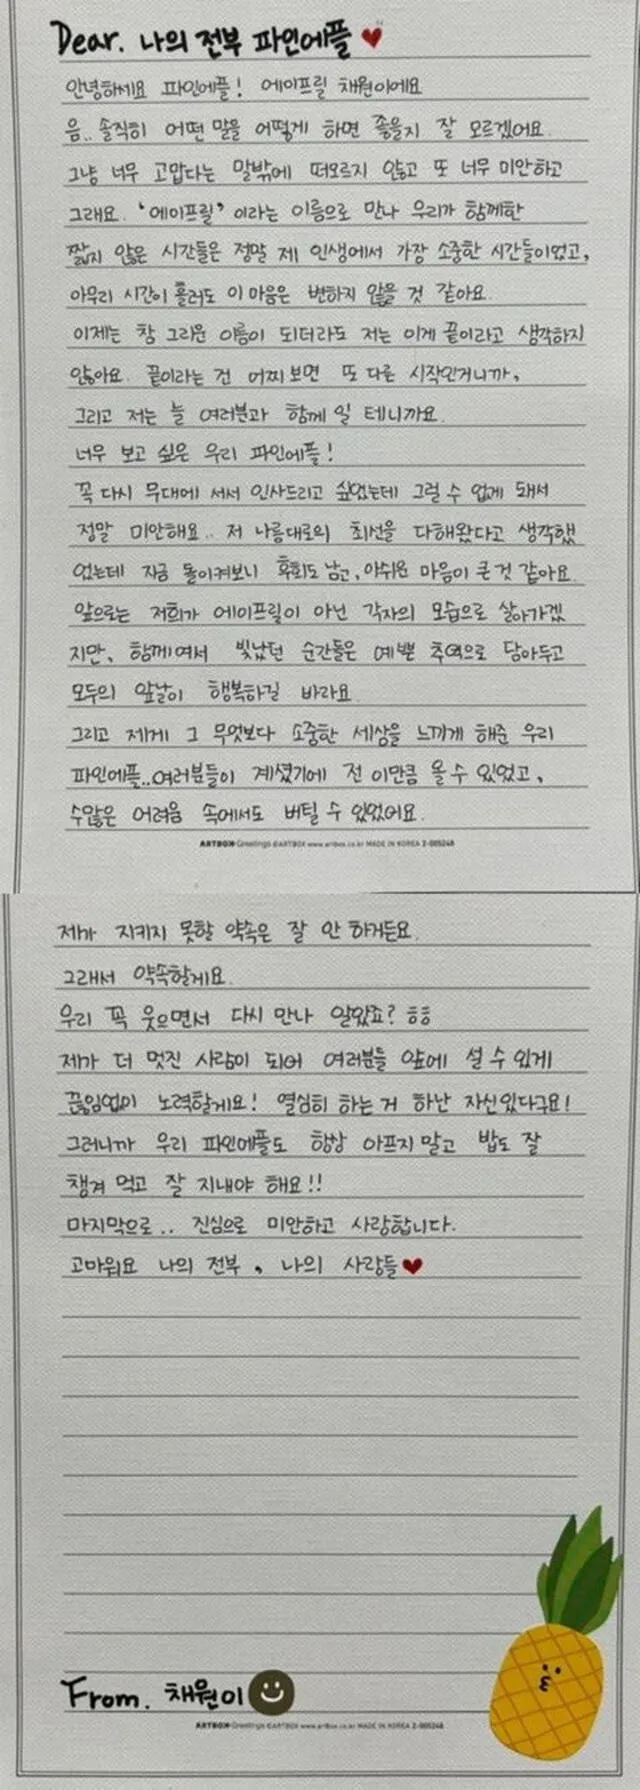 Dear. 나의 전부 파인에플
안녕하세요 파인에플! 에이프릴 채원이에요
음.. 솔직히 어떤 말을 어떻게 하면 좋을지 잘 모르겠어요.
그냥 너무 고맙다는 말밖에 떠오르지 않고 또 너무 미안하고
그래요. '에이프릴' 이라는 이름으로 만나 우리가 함께한
짧지 않은 시간들은 정말 제 인생에서 가장 소중한 시간들이었고,
아무리 시간이 흘러도 이 마음은 변하지 않을 것 같아요.
이제는 참 그리운 이름이 되더라도 저는 이게 끝이라고 생각하지
않아요. 끝이라는 건 어찌보면 또 다른 시작인거니까,
그리고 저는 늘 여러분과 함께 일 테니까요.
너무 보고 싶은 우리 파인에플!
꼭 다시 무대에 서서 인사드리고 싶었는데 그럴 수 없게 돼서
정말 미안해요.. 저 나름대로의 최선을 다해왔다고 생각했
었는데 지금 돌이켜보니 후회도 남고, 아쉬운 마음이 큰 것 같아요.
앞으로는 저희가 에이프릴이 아닌 각자의 모습으로 살아가겠
지만, 함께여서 빛났던 순간들은 예쁜 추억으로 담아두고
모두의 앞날이 행복하길 바라요.
그리고 제게 그 무엇보다 소중한 세상을 느끼게 해준 우리
파인에플..여러분들이 계셨기에 전 이만큼 올 수 있었고,
수많은 어려움 속에서도 버틸 수 있었어요.
ARTBOX Greetings ©ARTBOX www.artbox.co.kr MADE IN KOREA 2-005248
제가 지키지 못할 약속은 잘 안 하거든요.
그래서 약속할게요.
우리 꼭 웃으면서 다시 만나 알았죠? ㅎㅎ
제가 더 멋진 사람이 되어 여러분들 앞에 설 수 있게
끊임없이 노력할게요! 열심히 하는 거 하난 자신있다구요!
그러니까 우리 파인에플도 항상 아프지 말고 밥도 잘
챙겨 먹고 잘 지내야 해요!!
마지막으로.. 진심으로 미안하고 사랑합니다.
고마워요 나의 전부, 나의 사랑들
From. 채원이
ARTBOX Greetings ©ARTBOX www.artbox.co.kr MADE IN KOREA 2-005248